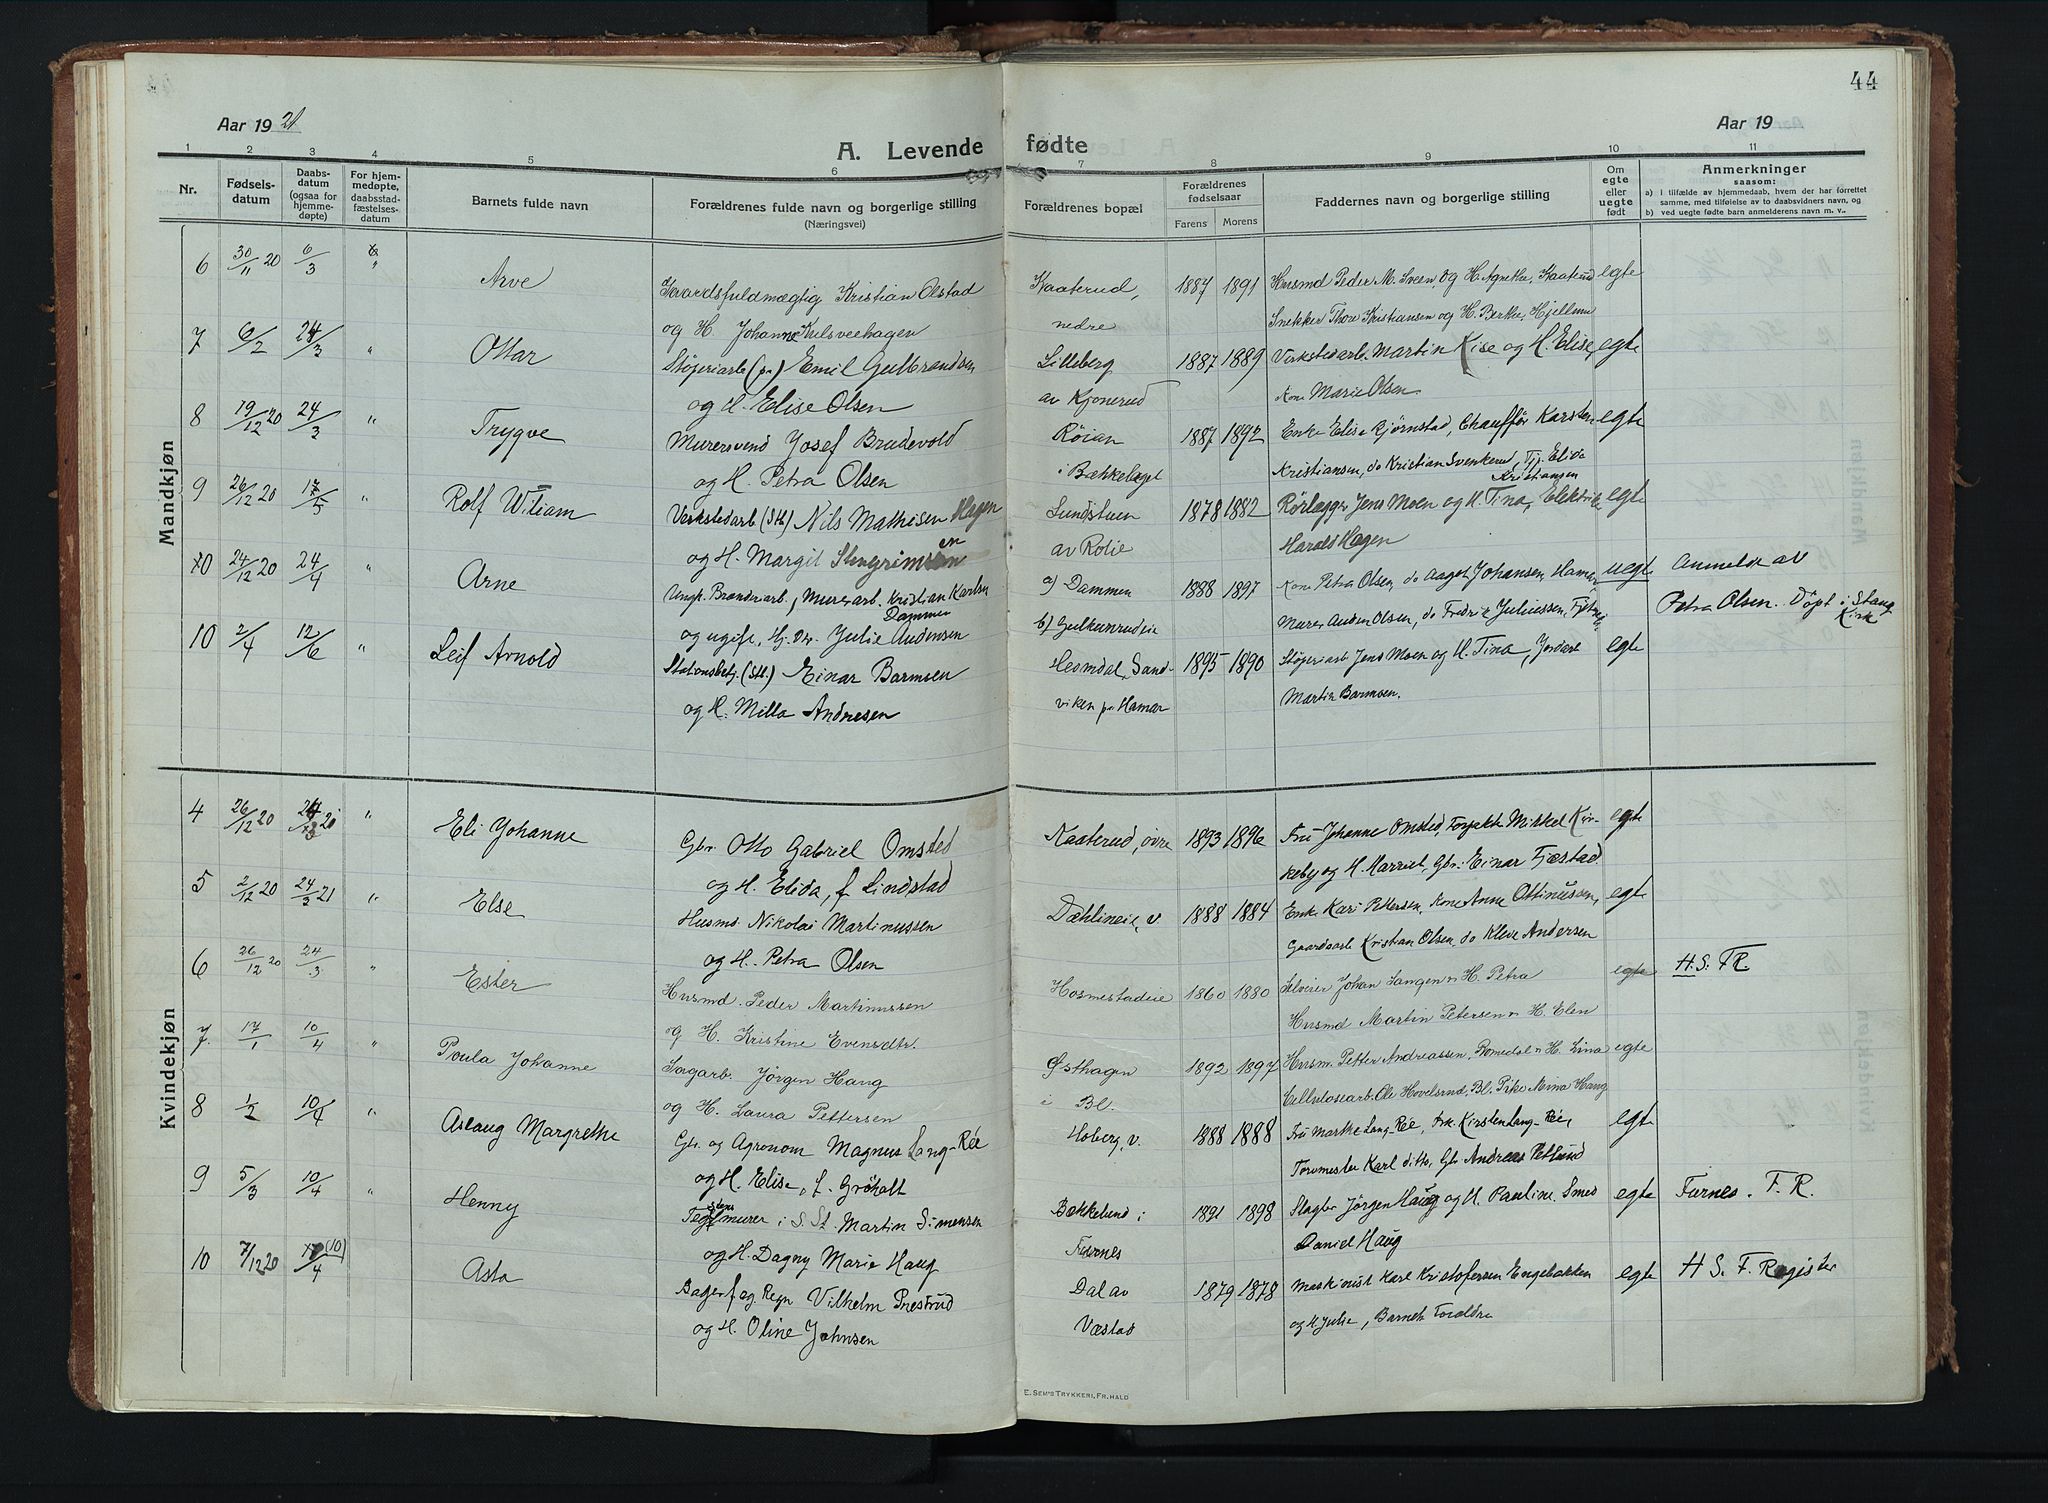 44
Aar 1921
Aar 19
A. Levende fødte
1 2 3 4 5 6 7 8 9 10 11
Nr.
Fødsels-
datum
Daabs-
datum
(ogsaa for
hjemme-
døpte)
For hjem-
medøpte,
daabsstad-
fæstelses-
datum
Barnets fulde navn
Forældrenes fulde navn og borgerlige stilling
(Næringsvei)
Forældrenes bopæl
Forældrenes
fødselsaar
Farens Morens
Faddernes navn og borgerlige stilling
Om
egte
eller
uegte
født
Anmerkninger
saasom:
a) i tilfælde av hjemmedaab, hvem der har forrettet
samme, med tilføielse av to daabsvidners navn, og
b) ved uegte fødte barn anmelderens navn m. v..
Mandkjøn
6 30/11 20 6/3 " Arve Gaardsfuldmægtig Kristian Olstad Kaaterud, 1887 1891 Husmd Peder M. Sveen, og H. Agnethe, Kaaterud egte
og H. Johanne Kulsveehagen nedre Snekker Thore Kristiansen og H. Berthe, Hjellum
7 6/2 24/3 " Ottar Støperiarb (pr) Emil Gulbrandsen Lilleberg 1887 1889 Verkstedarb. Martin Kise og H. Elise, egte
og H. Elise Olsen av Kjonerud Kone Marie Olsen
8 19/12 20 24/3 " Trygve Murersvend Josef Brudevold Röian 1887 1892 Enke Elise Bjørnstad, Chauffør Karsten egte
og H. Petra Olsen i Bækkelaget Kristiansen, do Kristian Svenkerud, Tj. Elida Kristiansen
9 26/12 20 17/5 " Rolf Wiliam Verkstedarb (Stb) Nils Mathisen Hagen Lundstuen 1878 1882 Rørlægger Jens Moen og H. Tina, Elektrik egte
og H. Margit Stengrimsen av Rolie Harald Hagen
10 24/12 20 24/4 " Arne Ungk. Brænderiarb. Murerarb. Kristian Karlsen Dammen a) Dammen 1888 1897 Kone Petra Olsen, do Aagot Johansen, Hamar uegt Anmeldt av
og ugift, Hj. Dtr. Julie Andersen b) Gulkunrudeie Murer Anders Olsen, do Fredrik Juliussen, Petra Olsen. Döpt i Stange Kirk
10 2/4 12/6 " Leif Arnold Stationsbetj. (Stb.) Einar Barmoen Heimdal, Sand- 1895 1890 Støperiarb Jens Moen og H. Tina, Jordarb egte
og H. Milla Andresen viken pr Hamar Martin Barmoen.
Kvindekjøn
4 26/12 20 " Eli Johanne Gbr. Otto Gabriel Omsted Kaaterud, övre 1893 1896 Fru Johanne Omsted, Forpakter Mikkel Kir- egte
og H. Elida, f. Lindstad keby og H. Marriel, Gbr. Einar Fjæstad.
5 2/12 20 24/3 21 " Else Husmd Nikolai Martinussen Dæhlineie, v 1888 1884 Enke Kari Pettersen, Kone Anne Ottinusen, egte
og H. Petra Olsen Gaardsarb Kristian Olsen, do Kleve Andersen
6 26/12 20 24/3 " Ester Husmd. Peder Martinussen Hosmestadeie 1860 1880 Johan Langen n H. Petra egte H. S. F R.
og H. Kristine Evensdtr. Husmd Martin Petersen n H. Elen
7. 17/1 10/4 " Poula Johanne Sagarb. Jørgen Haug Østhagen 1892 1897 Husm. Petter Andreassen, Romedal n H. Lina egte
og H. Laura Pettersen i Bl. Cellulosearb. Ole Hovelsrud, Bl. Pike Mina Haug
8 1/2 10/4 " Aslaug Margrethe Gbr. og Agronom Magnus Lang-Rée Hoberg, v. 1888 1888 Fru Marthe Lang-Rée, Frk. Kirsten Lang-Rée, egte
og H. Elise, f. Gröholt Torvmester Karl ditto, Gbr Andreas Petlund
9 5/3 10/4 " Henny Teglstensmurer i S. St. Martin Simensen Bækkelund i 1891 1898 Slagter Jörgen Haug og H. Pauline. Smed egte Furnes. F. R.
og H. Dagny Marie Haug Furnes Daniel Haug
10 7/12 20 (10)/4 Asta Bager f og. Regn Vilhelm Prestrud Dal av 1879 1878 Maskinist Karl Kristofersen Engebakken egte H S. F. Register
og H. Oline Johnsen Væstad og H. Julie, Barnets Foreldre
E. SEM'S TRYKKERI, FR. HALD